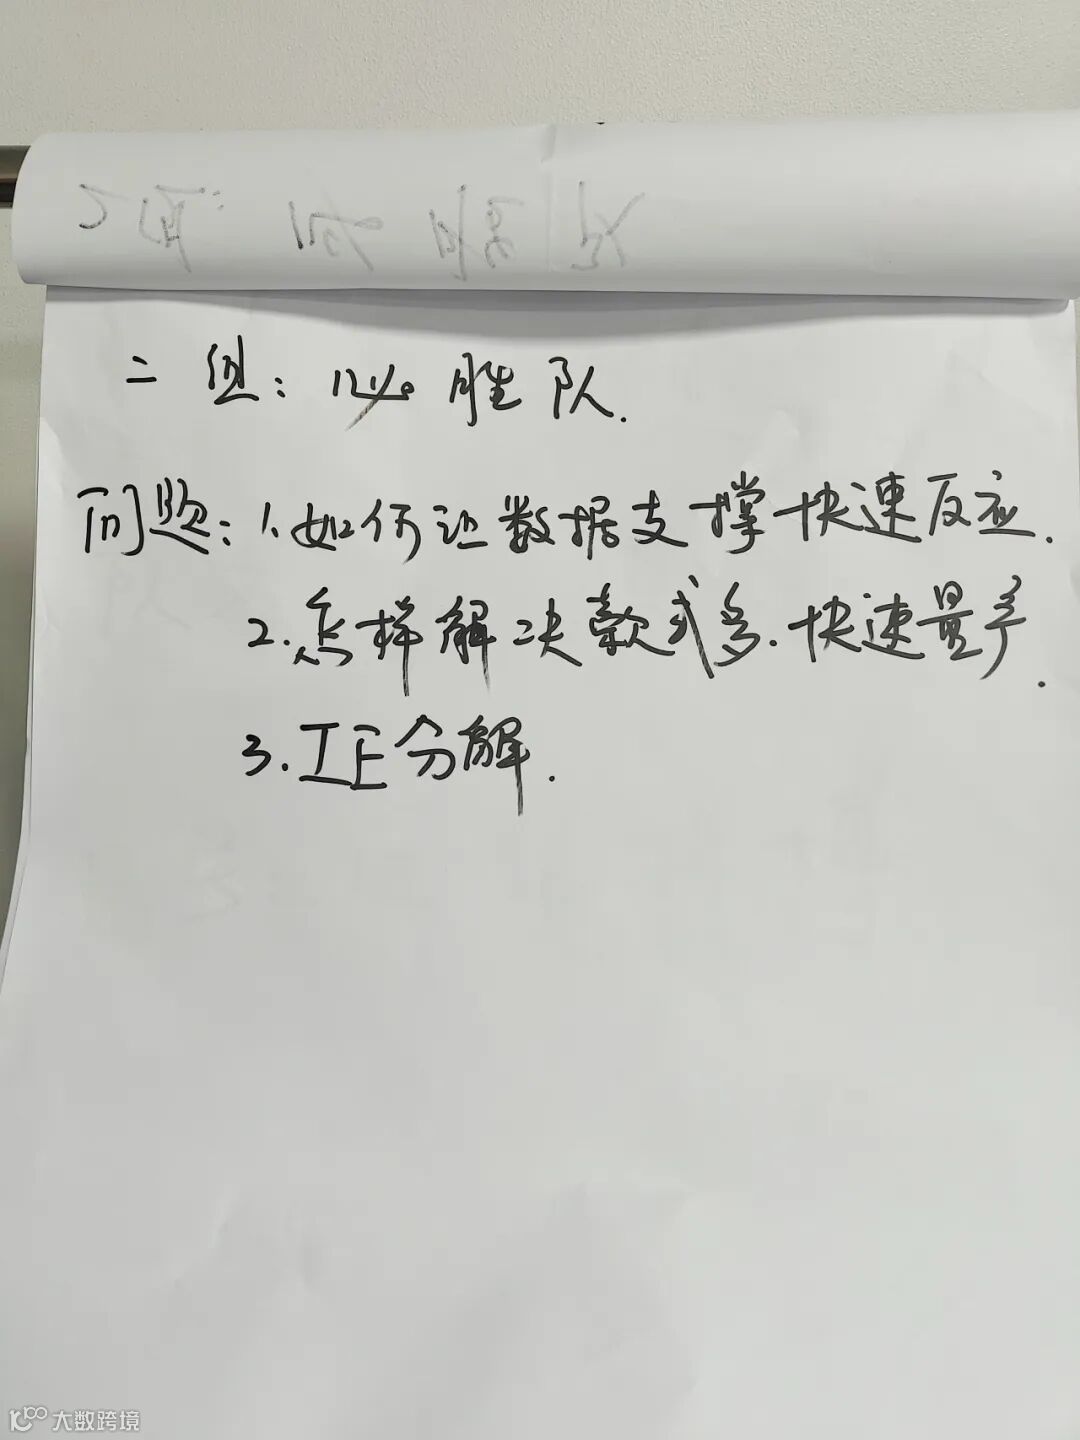 二组：必胜队.
问题：1.如何让数据支撑快速反应.
2.怎样解决款式多.快速量产.
3.IE分解.
大数跨境